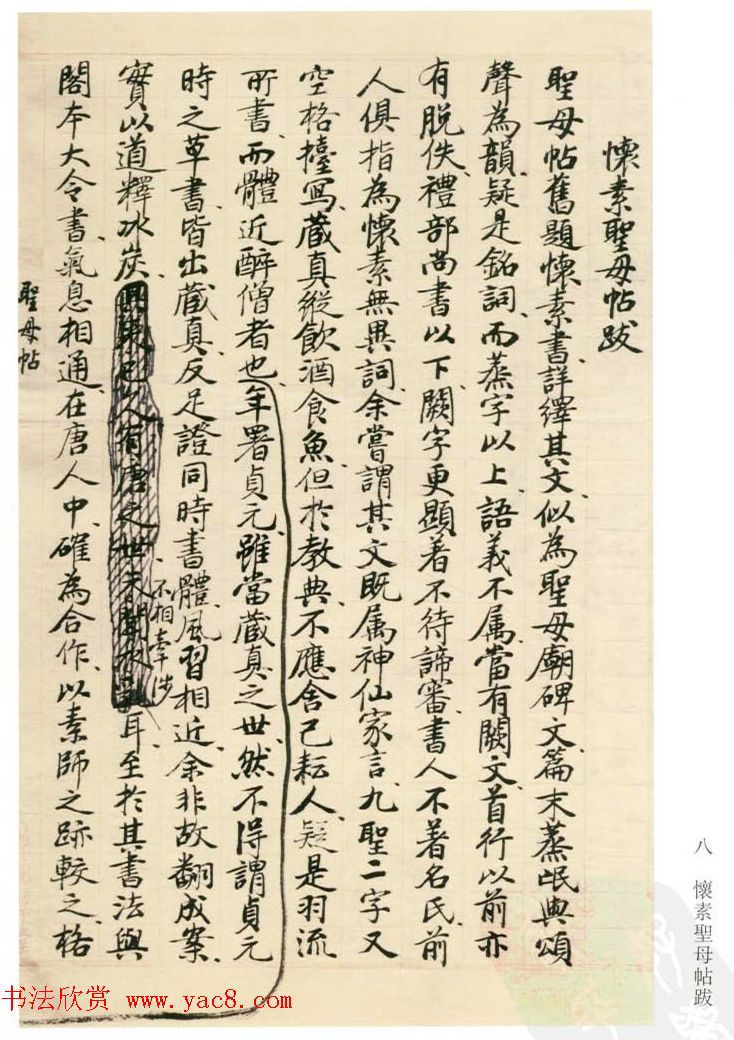 懷素聖母帖跋
聖母帖舊題懷素書詳繹其文、似為聖母廟碑文、篇末蒸岷與頌
聲為韻、疑是銘詞、而蒸字以上語義不属、當有闕文、首行以前亦
有脱佚、禮部尚書以下、闕字更顯著不待諦審、書人不著名氏、前
人俱指為懷素無異詞、余嘗謂其文既属神仙家言、九聖二字又
空格擡寫、蔵真縱飲酒食魚、但於教典不應舍己耘人、疑是羽流
所書、而體近醉僧者也、年署貞元、雖當蔵真之世、然不得謂貞元
時之草書、皆出蔵真、反足證同時書體、風習相近、余非故翻成案、
實以道釋冰炭不相牽涉耳、至於其書法與
閣本大令書、氣息相通、在唐人中、確為合作、以素師之跡較之、格
聖母帖
八 懷素聖母帖跋
书法欣赏 www.yac8.com